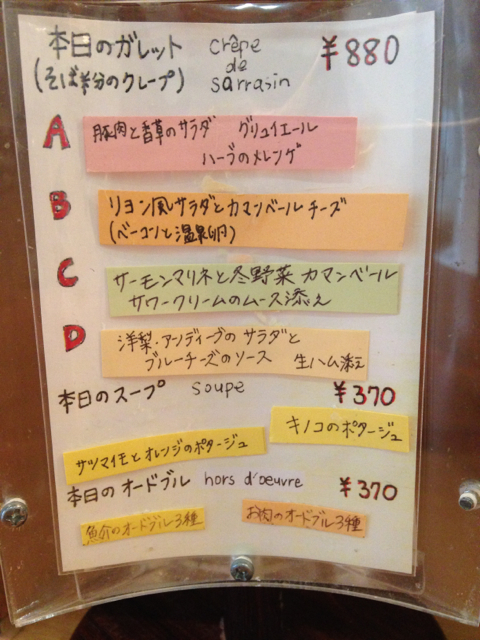 本日のガレット crêpe de sarrasin ¥880
(そば半分のクレープ)
A 豚肉と香草のサラダ グリュイエール
ハーブのメレンゲ
B リヨン風サラダとカマンベールチーズ
(ベーコンと温泉卵)
C サーモンマリネと冬野菜 カマンベール
サワークリームのムース添え
D 洋梨・アンディーブのサラダと
ブルーチーズのソース 生ハム添え
本日のスープ soupe ¥370
キノコのポタージュ
サツマイモとオレンジのポタージュ
本日のオードブル hors d'oeuvre ¥370
魚介のオードブル3種
お肉のオードブル3種